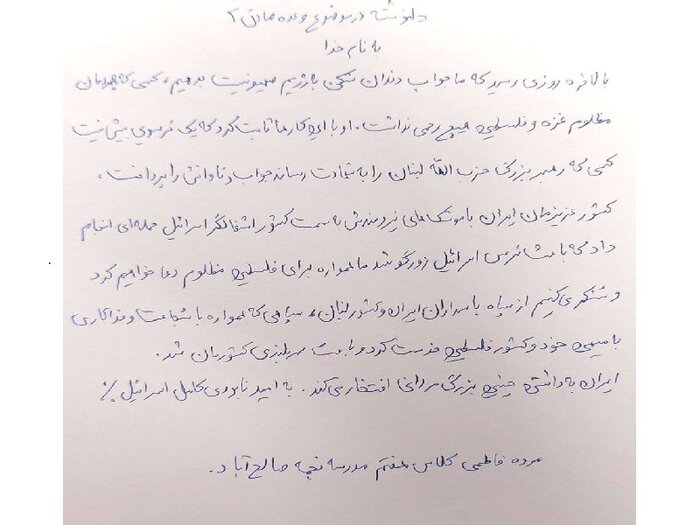 دلنوشته در موضوع وعده صادق ۲
به نام خدا
بالاخره روزی رسید که ما جواب دندان شکن به رژیم صهیونیست بدهیم، کسی که به مردمان
مظلوم غزه و فلسطین هیچ رحمی نداشت. او با این کارها ثابت کرد که یک ترسویی بیش نیست
کسی که رهبر بزرگ حزب الله لبنان را به شهادت رساند جواب و تاوانش را پرداخت.
کشور عزیزمان ایران با موشک های نیرومندش به سمت کشور اشغالگر اسرائیل حمله‌ای انجام
داد که باعث ترس اسرائیل زورگو شد ما همواره برای فلسطین مظلوم دعا خواهیم کرد
و تشکر می‌کنیم از سپاه پاسداران ایران و کشور لبنان، سپاهی که همواره با شجاعت و فداکاری
به میهن خود و کشور فلسطین خدمت کرد و باعث سربلندی کشورمان شد.
ایران به داشتن چنین بزرگ مردانی افتخار می‌کند. به امید نابودی کامل اسرائیل٪
فاطمی کلاس هفتم مدرسه نجمه صالح آباد.